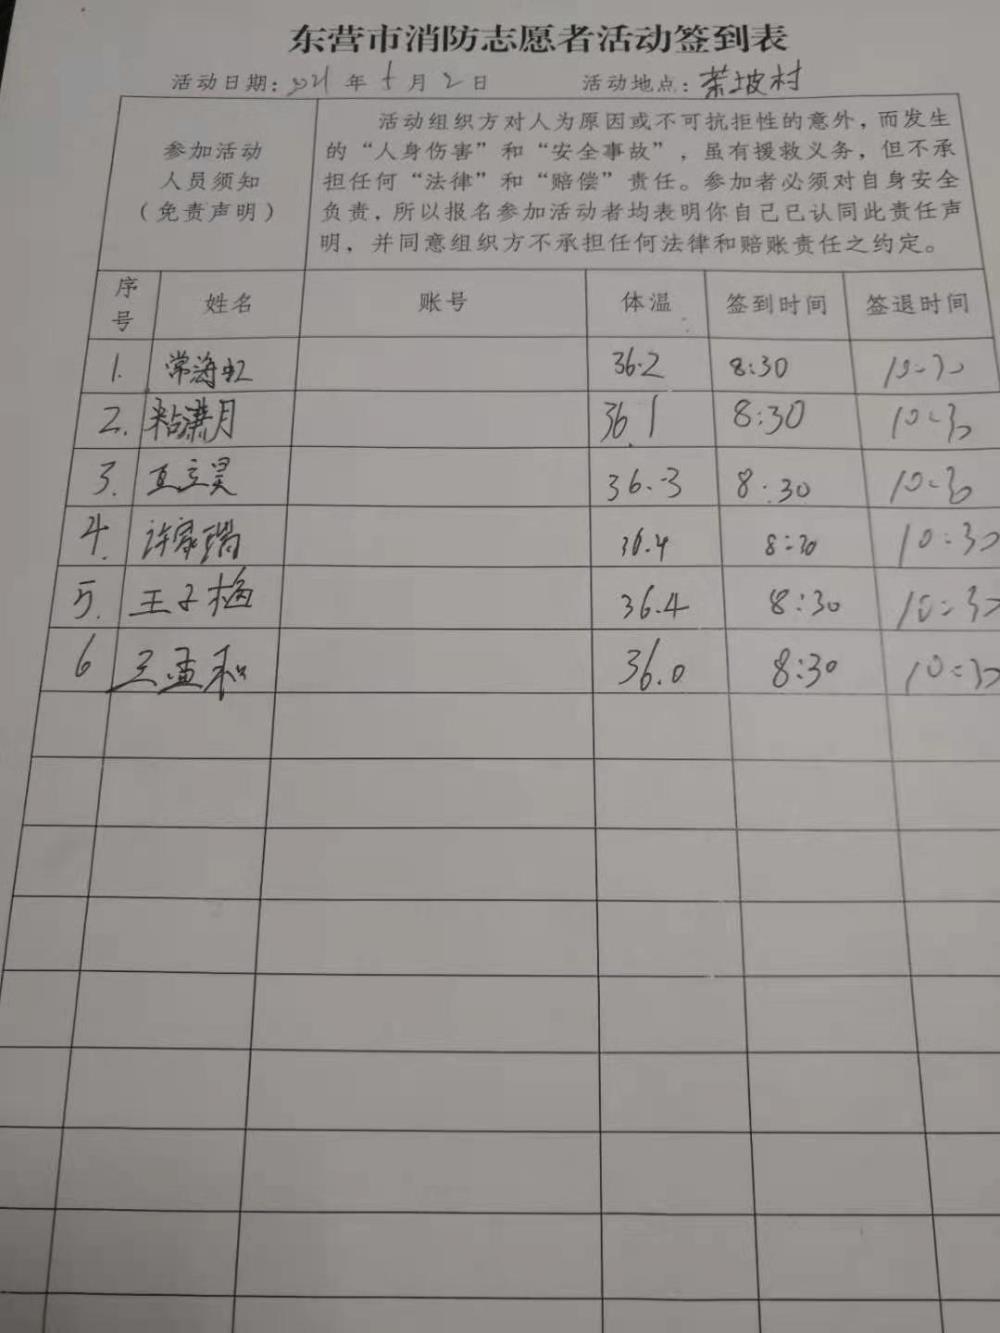 东营市消防志愿者活动签到表
活动日期: 2021 年 5 月 2 日 活动地点: 茶坡村
参加活动
人员须知
（免责声明）
活动组织方对人为原因或不可抗拒性的意外，而发生
的“人身伤害”和“安全事故”，虽有援救义务，但不承
担任何“法律”和“赔偿”责任。参加者必须对自身安全
负责，所以报名参加活动者均表明你自己已认同此责任声
明，并同意组织方不承担任何法律和赔账责任之约定。
序号 姓名 账号 体温 签到时间 签退时间
1. 常海虹 36.2 8:30 10:30
2. 粘潇月 36.1 8:30 10:30
3. 立昊 36.3 8:30 10:30
4. 许家瑞 36.4 8:30 10:30
5. 王子梅 36.4 8:30 10:30
6 王孟和 36.0 8:30 10:30